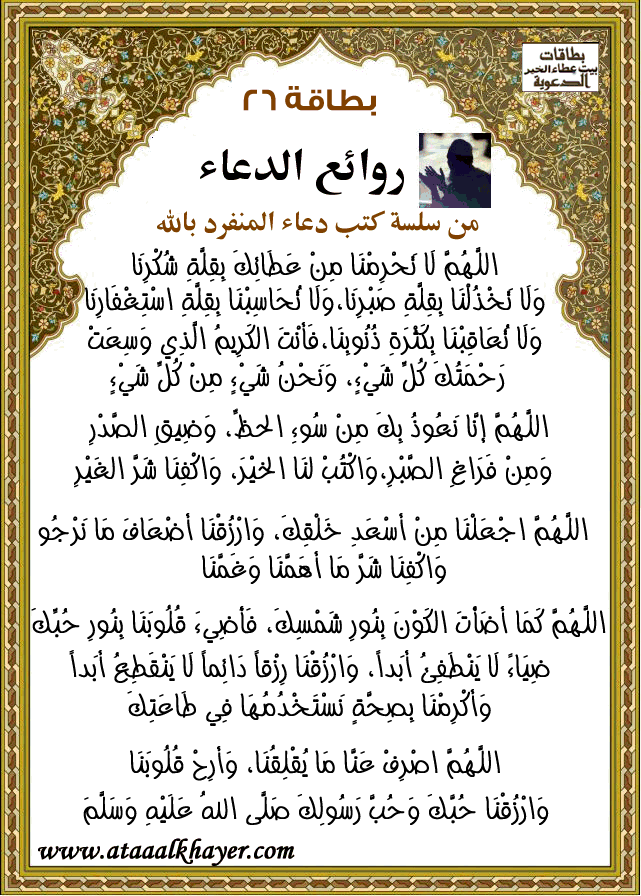 بطاقات
بيت عطاء الخير
الدعوية
بطاقة ٢٦
روائع الدعاء
من سلسة كتب دعاء المنفرد بالله
اللَّهُمَّ لَا تَحْرِمْنَا مِنْ عَطَائِكَ بِقِلَّةِ شُكْرِنَا
وَلَا تَخْذُلْنَا بِقِلَّةِ صَبْرِنَا،وَلَا تُحَاسِبْنَا بِقِلَّةِ اسْتِغْفَارِنَا
وَلَا تُعَاقِبْنَا بِكَثْرَةِ ذُنُوبِنَا،فَأَنْتَ الكَرِيمُ الَّذِي وَسِعَتْ
رَحْمَتُكَ كُلِّ شَيْءٍ، وَنَحْنُ شَيْءٍ مِنْ كُلِّ شَيْءٍ
اللَّهُمَّ إنَّا نَعُوذُ بِكَ مِنْ سُوءِ الحظِّ، وَضِيقِ الصَّدْرِ
وَمِنْ فَرَاغِ الصَّبْرِ،وَاكْتُبْ لنَا الخيْرَ، وَاكْفِنَا شَرَّ الغَيْرِ
اللَّهُمَّ اجْعَلْنَا مِنْ أسْعَدِ خَلْقِكَ، وَارْزُقْنَا أضْعَافَ مَا نَرْجُو
وَاكْفِنَا شَرَّ مَا أهَمَّنَا وَغَمَّنَا
اللَّهُمَّ كَمَا أضَأْتَ الكَوْنَ بِنُورِ شَمْسِكَ، فَأَضِيءَ قُلُوبَنَا بِنُورِ حُبِّكَ
ضِيَاءً لَا يَنْطَفِئُ أبَداً، وَارْزُقْنَا رِزْقاً دَائِماً لَا يَنْقَطِعُ أبَداً
وَأكْرِمْنَا بِصِحَّةٍ نَسْتَخْدُمُهَا فِي طَاعَتِكَ
اللَّهُمَّ اصْرِفْ عَنَّا مَا يُقْلِقُنَا، وَأرِحْ قُلُوبَنَا
وَارْزُقْنَا حُبَّكَ وَحُبَّ رَسُولِكَ صَلَّى اللهُ عَلَيْهِ وَسَلَّمَ
www.ataaalkhayer.com